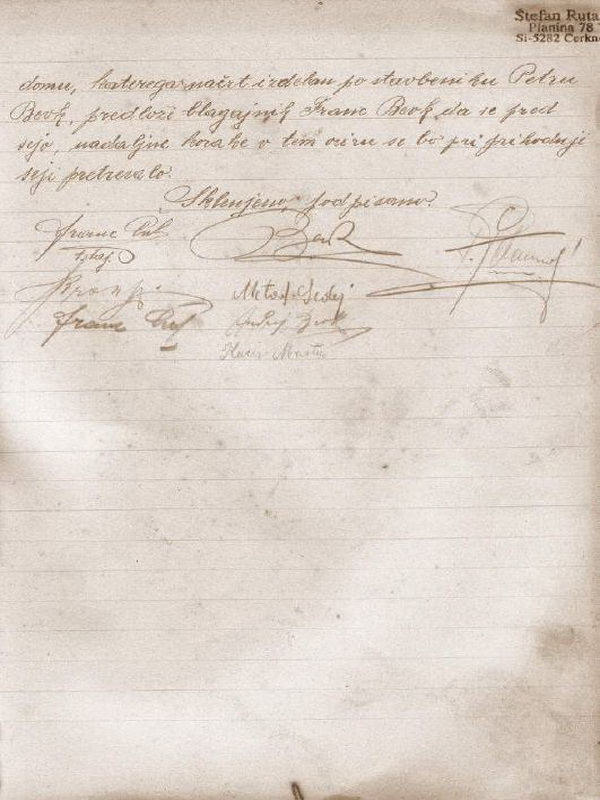 Štefan Ruta
Planina 78
SI-5282 Cerkno
domu, katerega načrt izdelan po stavbeniku Petru
Bevk, predloži blagajnik Franc Bevk, da se pred
sejo, nadaljne korake v tem oziru se bo pri prihodnji
seji pretresalo.
Sklenjeno, podpisano:
Franc
Bevk
Metod Sedej
Franc
Andrej Bevk